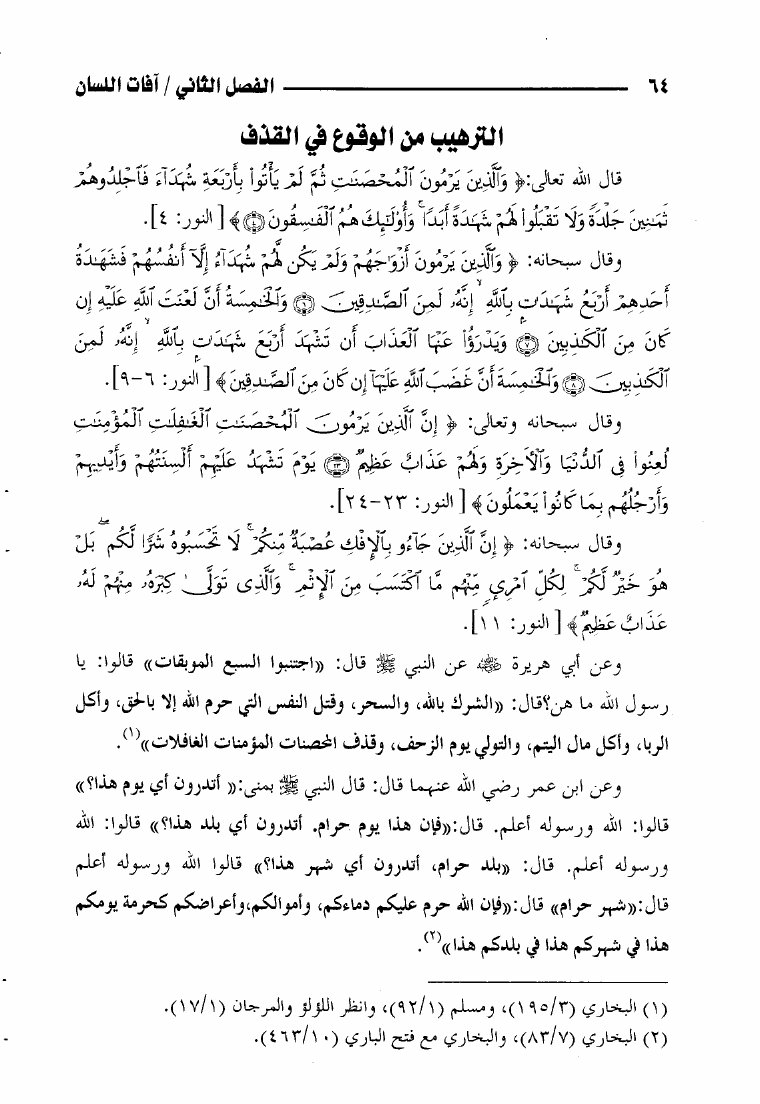 ٦٤ الفصل الثاني / آفات اللسان
الترهيب من الوقوع في القذف
قال الله تعالى: ﴿ وَٱلَّذِينَ يَرْمُونَ ٱلْمُحْصَنَٰتِ ثُمَّ لَمْ يَأْتُوا۟ بِأَرْبَعَةِ شُهَدَآءَ فَٱجْلِدُوهُمْ
ثَمَٰنِينَ جَلْدَةً وَلَا تَقْبَلُوا۟ لَهُمْ شَهَٰدَةً أَبَدًا ۚ وَأُو۟لَٰٓئِكَ هُمُ ٱلْفَٰسِقُونَ ۝٤ ﴾ [ النور: ٤].
وقال سبحانه: ﴿ وَٱلَّذِينَ يَرْمُونَ أَزْوَٰجَهُمْ وَلَمْ يَكُن لَّهُمْ شُهَدَآءُ إِلَّآ أَنفُسُهُمْ فَشَهَٰدَةُ
أَحَدِهِمْ أَرْبَعُ شَهَٰدَٰتٍۭ بِٱللَّهِ ۙ إِنَّهُۥ لَمِنَ ٱلصَّٰدِقِينَ ۝٦ وَٱلْخَٰمِسَةُ أَنَّ لَعْنَتَ ٱللَّهِ عَلَيْهِ إِن
كَانَ مِنَ ٱلْكَٰذِبِينَ ۝٧ وَيَدْرَؤُا۟ عَنْهَا ٱلْعَذَابَ أَن تَشْهَدَ أَرْبَعَ شَهَٰدَٰتٍۭ بِٱللَّهِ ۙ إِنَّهُۥ لَمِنَ
ٱلْكَٰذِبِينَ ۝٨ وَٱلْخَٰمِسَةَ أَنَّ غَضَبَ ٱللَّهِ عَلَيْهَآ إِن كَانَ مِنَ ٱلصَّٰدِقِينَ ﴾ [ النور: ٦-٩].
وقال سبحانه وتعالى: ﴿ إِنَّ ٱلَّذِينَ يَرْمُونَ ٱلْمُحْصَنَٰتِ ٱلْغَٰفِلَٰتِ ٱلْمُؤْمِنَٰتِ
لُعِنُوا۟ فِى ٱلدُّنْيَا وَٱلْءَاخِرَةِ وَلَهُمْ عَذَابٌ عَظِيمٌ ۝٢٣ يَوْمَ تَشْهَدُ عَلَيْهِمْ أَلْسِنَتُهُمْ وَأَيْدِيهِمْ
وَأَرْجُلُهُم بِمَا كَانُوا۟ يَعْمَلُونَ ﴾ [ النور: ٢٣-٢٤].
وقال سبحانه: ﴿ إِنَّ ٱلَّذِينَ جَآءُو بِٱلْإِفْكِ عُصْبَةٌ مِّنكُمْ ۚ لَا تَحْسَبُوهُ شَرًّا لَّكُم ۖ بَلْ
هُوَ خَيْرٌ لَّكُمْ ۚ لِكُلِّ ٱمْرِئٍ مِّنْهُم مَّا ٱكْتَسَبَ مِنَ ٱلْإِثْمِ ۚ وَٱلَّذِى تَوَلَّىٰ كِبْرَهُۥ مِنْهُمْ لَهُۥ
عَذَابٌ عَظِيمٌ ﴾ [ النور: ١١].
وعن أبي هريرة رضي الله عنه عن النبي ﷺ قال: «اجتنبوا السبع الموبقات» قالوا: يا
رسول الله ما هن؟قال: «الشرك بالله، والسحر، وقتل النفس التي حرم الله إلا بالحق، وأكل
الربا، وأكل مال اليتم، والتولي يوم الزحف، وقذف المحصنات المؤمنات الغافلات»(١).
وعن ابن عمر رضي الله عنهما قال: قال النبي ﷺ بمنى:« أتدرون أي يوم هذا؟»
قالوا: الله ورسوله أعلم. قال:«فإن هذا يوم حرام. أتدرون أي بلد هذا؟» قالوا: الله
ورسوله أعلم. قال: «بلد حرام، أتدرون أي شهر هذا؟» قالوا الله ورسوله أعلم
قال:«شهر حرام» قال:«فإن الله حرم عليكم دماءكم، وأموالكم،وأعراضكم كحرمة يومكم
هذا في شهركم هذا في بلدكم هذا»(٢).
(١) البخاري (١٩٥/٣)، ومسلم (٩٢/١)، وانظر اللؤلؤ والمرجان (١٧/١).
(٢) البخاري (٨٣/٧)، والبخاري مع فتح الباري (٤٦٣/١٠).